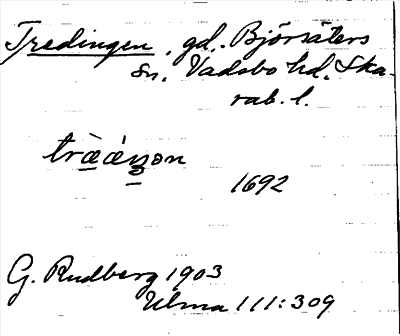 Tredingen, gd. Björsäters
sn, Vadsbo hd, Ska-
rab. l.
1692
G. Rudberg 1903
Ulma 111:309